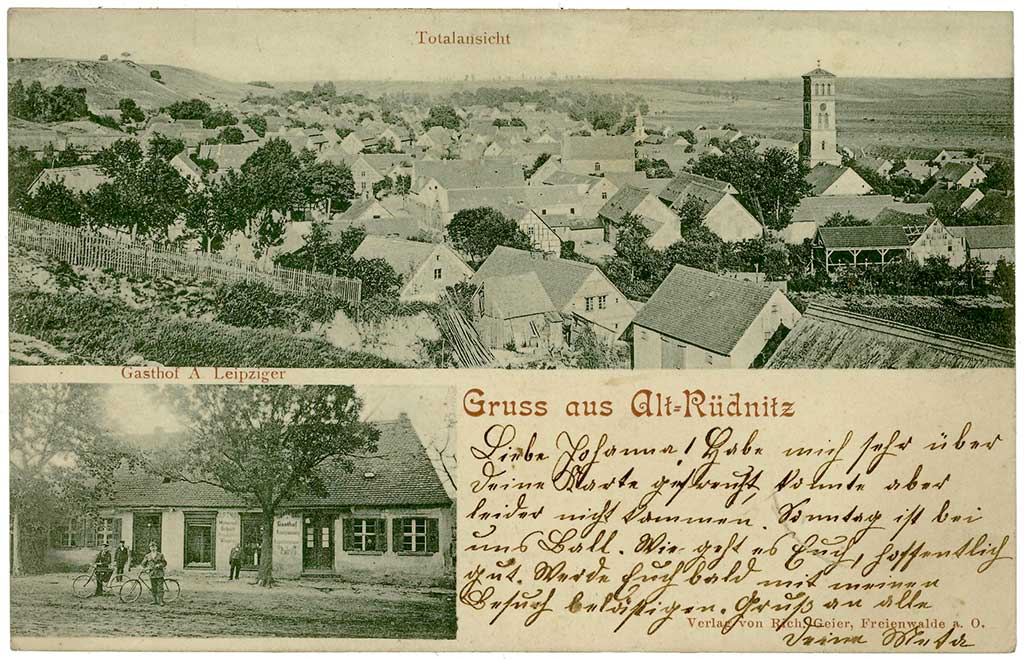 Totalansicht
Gasthof A. Leipziger
Gasthof
Gruss aus Alt-Rüdnitz
Liebe Johanna! Habe mich sehr über
Deine Karte gefreut, konnte aber
leider nicht kommen. Sonntag ist bei
uns Ball. Wie geht es Euch, hoffentlich
gut. Werde Euch bald mit meinen
Besuch belästigen. Gruß an alle
Verlag von Rich. Geier, Freienwalde a. O.
Deine Meta